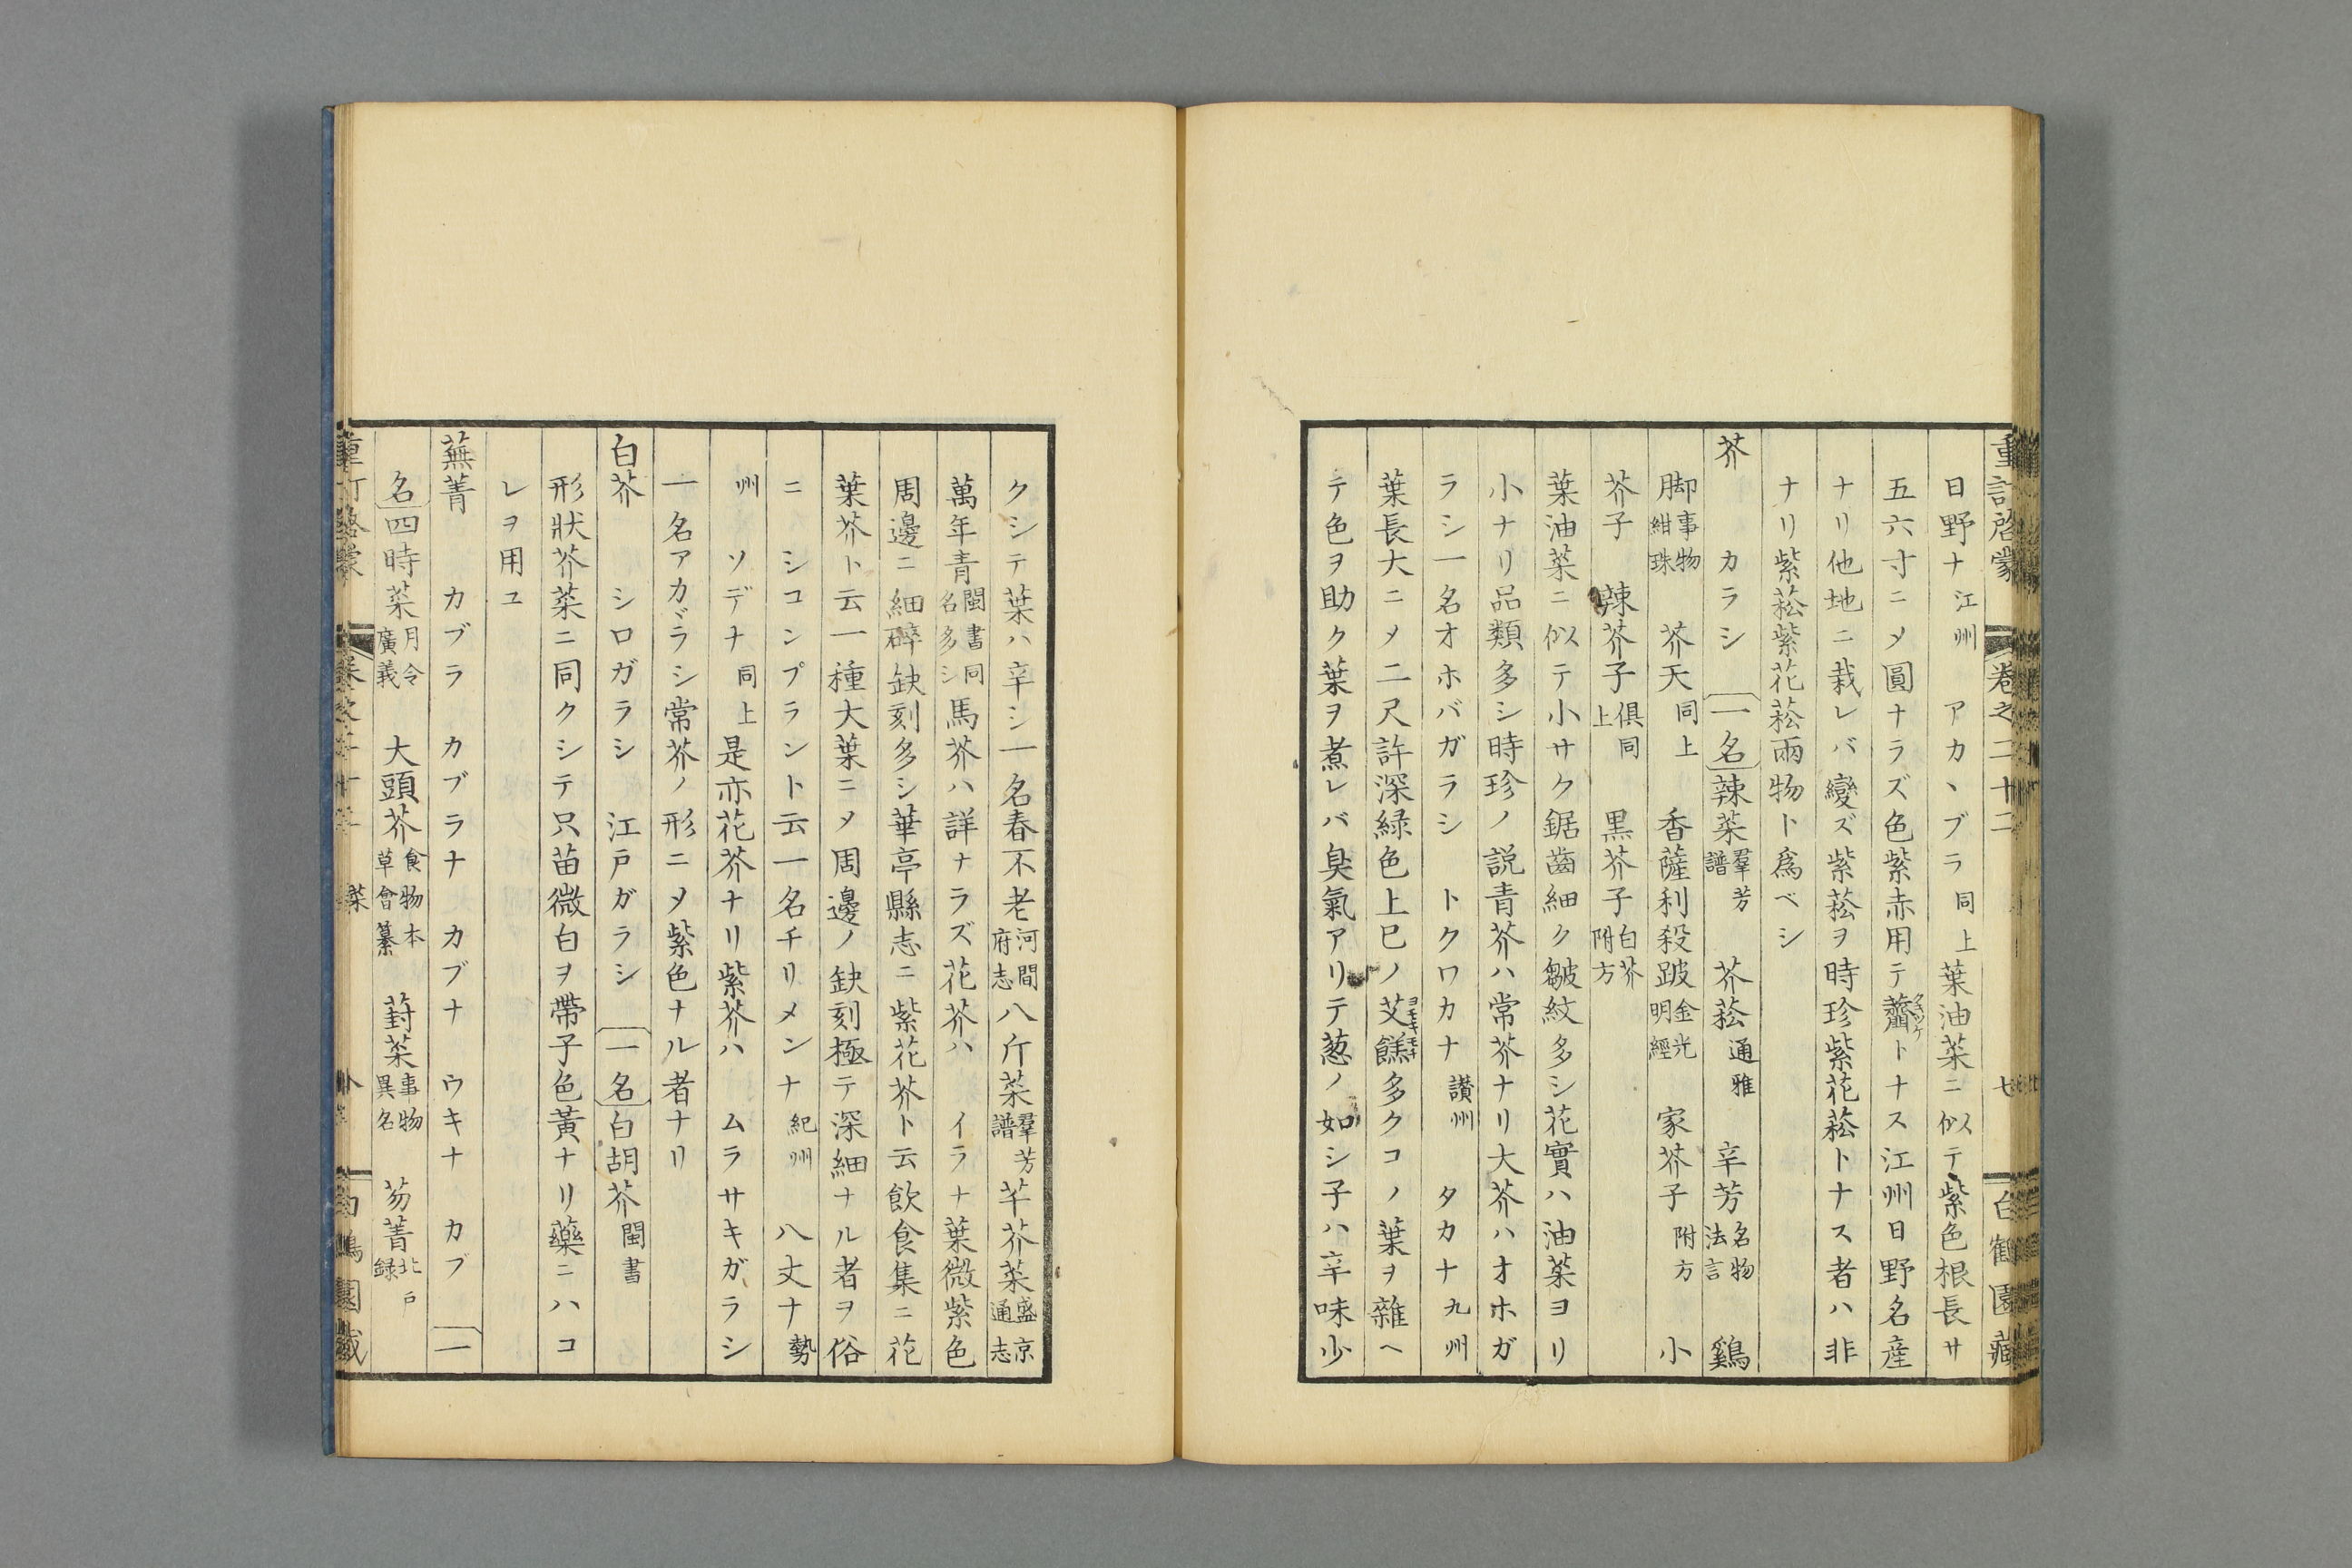 重訂啓蒙 卷之二十二 七 白鶴園藏
日野ナ江州 アカヽブラ同上葉油菜ニ似テ紫色根長サ
五六寸ニメ圓ナラズ色紫赤用テ虀クキツケトナス江州日野名産
ナリ他地ニ栽レバ變ズ紫菘ヲ時珍紫花菘トナス者ハ非
ナリ紫菘紫花菘兩物ト爲ベシ
芥 カラシ 一名辣菜羣芳譜 芥菘通雅 辛芳名物法言 鷄
脚事物紺珠 芥天同上 香薩利殺跛金光明經 家芥子附方 小
芥子 辣芥子俱同上 黒芥子白芥附方
葉油菜ニ似テ小サク鋸齒細ク皺紋多シ花實ハ油菜ヨリ
小ナリ品類多シ時珍ノ説青芥ハ常芥ナリ大芥ハオホガ
ラシ一名オホバガラシ トクワカナ讃州 タカナ九州
葉長大ニメ二尺許深緑色上巳ノ艾餻ヨモギモチ多クコノ葉ヲ雜ヘ
テ色ヲ助ク葉ヲ煮レバ臭氣アリテ葱ノ如シ子ハ辛味少
クシテ葉ハ辛シ一名春不老河間府志八斤菜羣芳譜芊芥菜盛京通志
萬年青閩書同名多シ馬芥ハ詳ナラズ花芥ハ イラナ葉微紫色
周邊ニ細碎缺刻多シ華亭縣志ニ紫花芥ト云飲食集ニ花
葉芥ト云一種大葉ニメ周邊ノ缺刻極テ深細ナル者ヲ俗
ニ シコンプラント云一名チリメンナ紀州 八丈ナ勢
州 ソデナ同上是亦花芥ナリ紫芥ハ ムラサキガラシ
一名アカガラシ常芥ノ形ニメ紫色ナル者ナリ
白芥 シロガラシ 江戸ガラシ 一名白胡芥閩書
形狀芥菜ニ同クシテ只苗微白ヲ帶子色黃ナリ藥ニハコ
レヲ用ユ
蕪菁 カブラ カブラナ カブナ ウキナ カブ 一
名四時菜月令廣義 大頭芥食物本草會纂 葑菜事物異名 芴菁北戸録